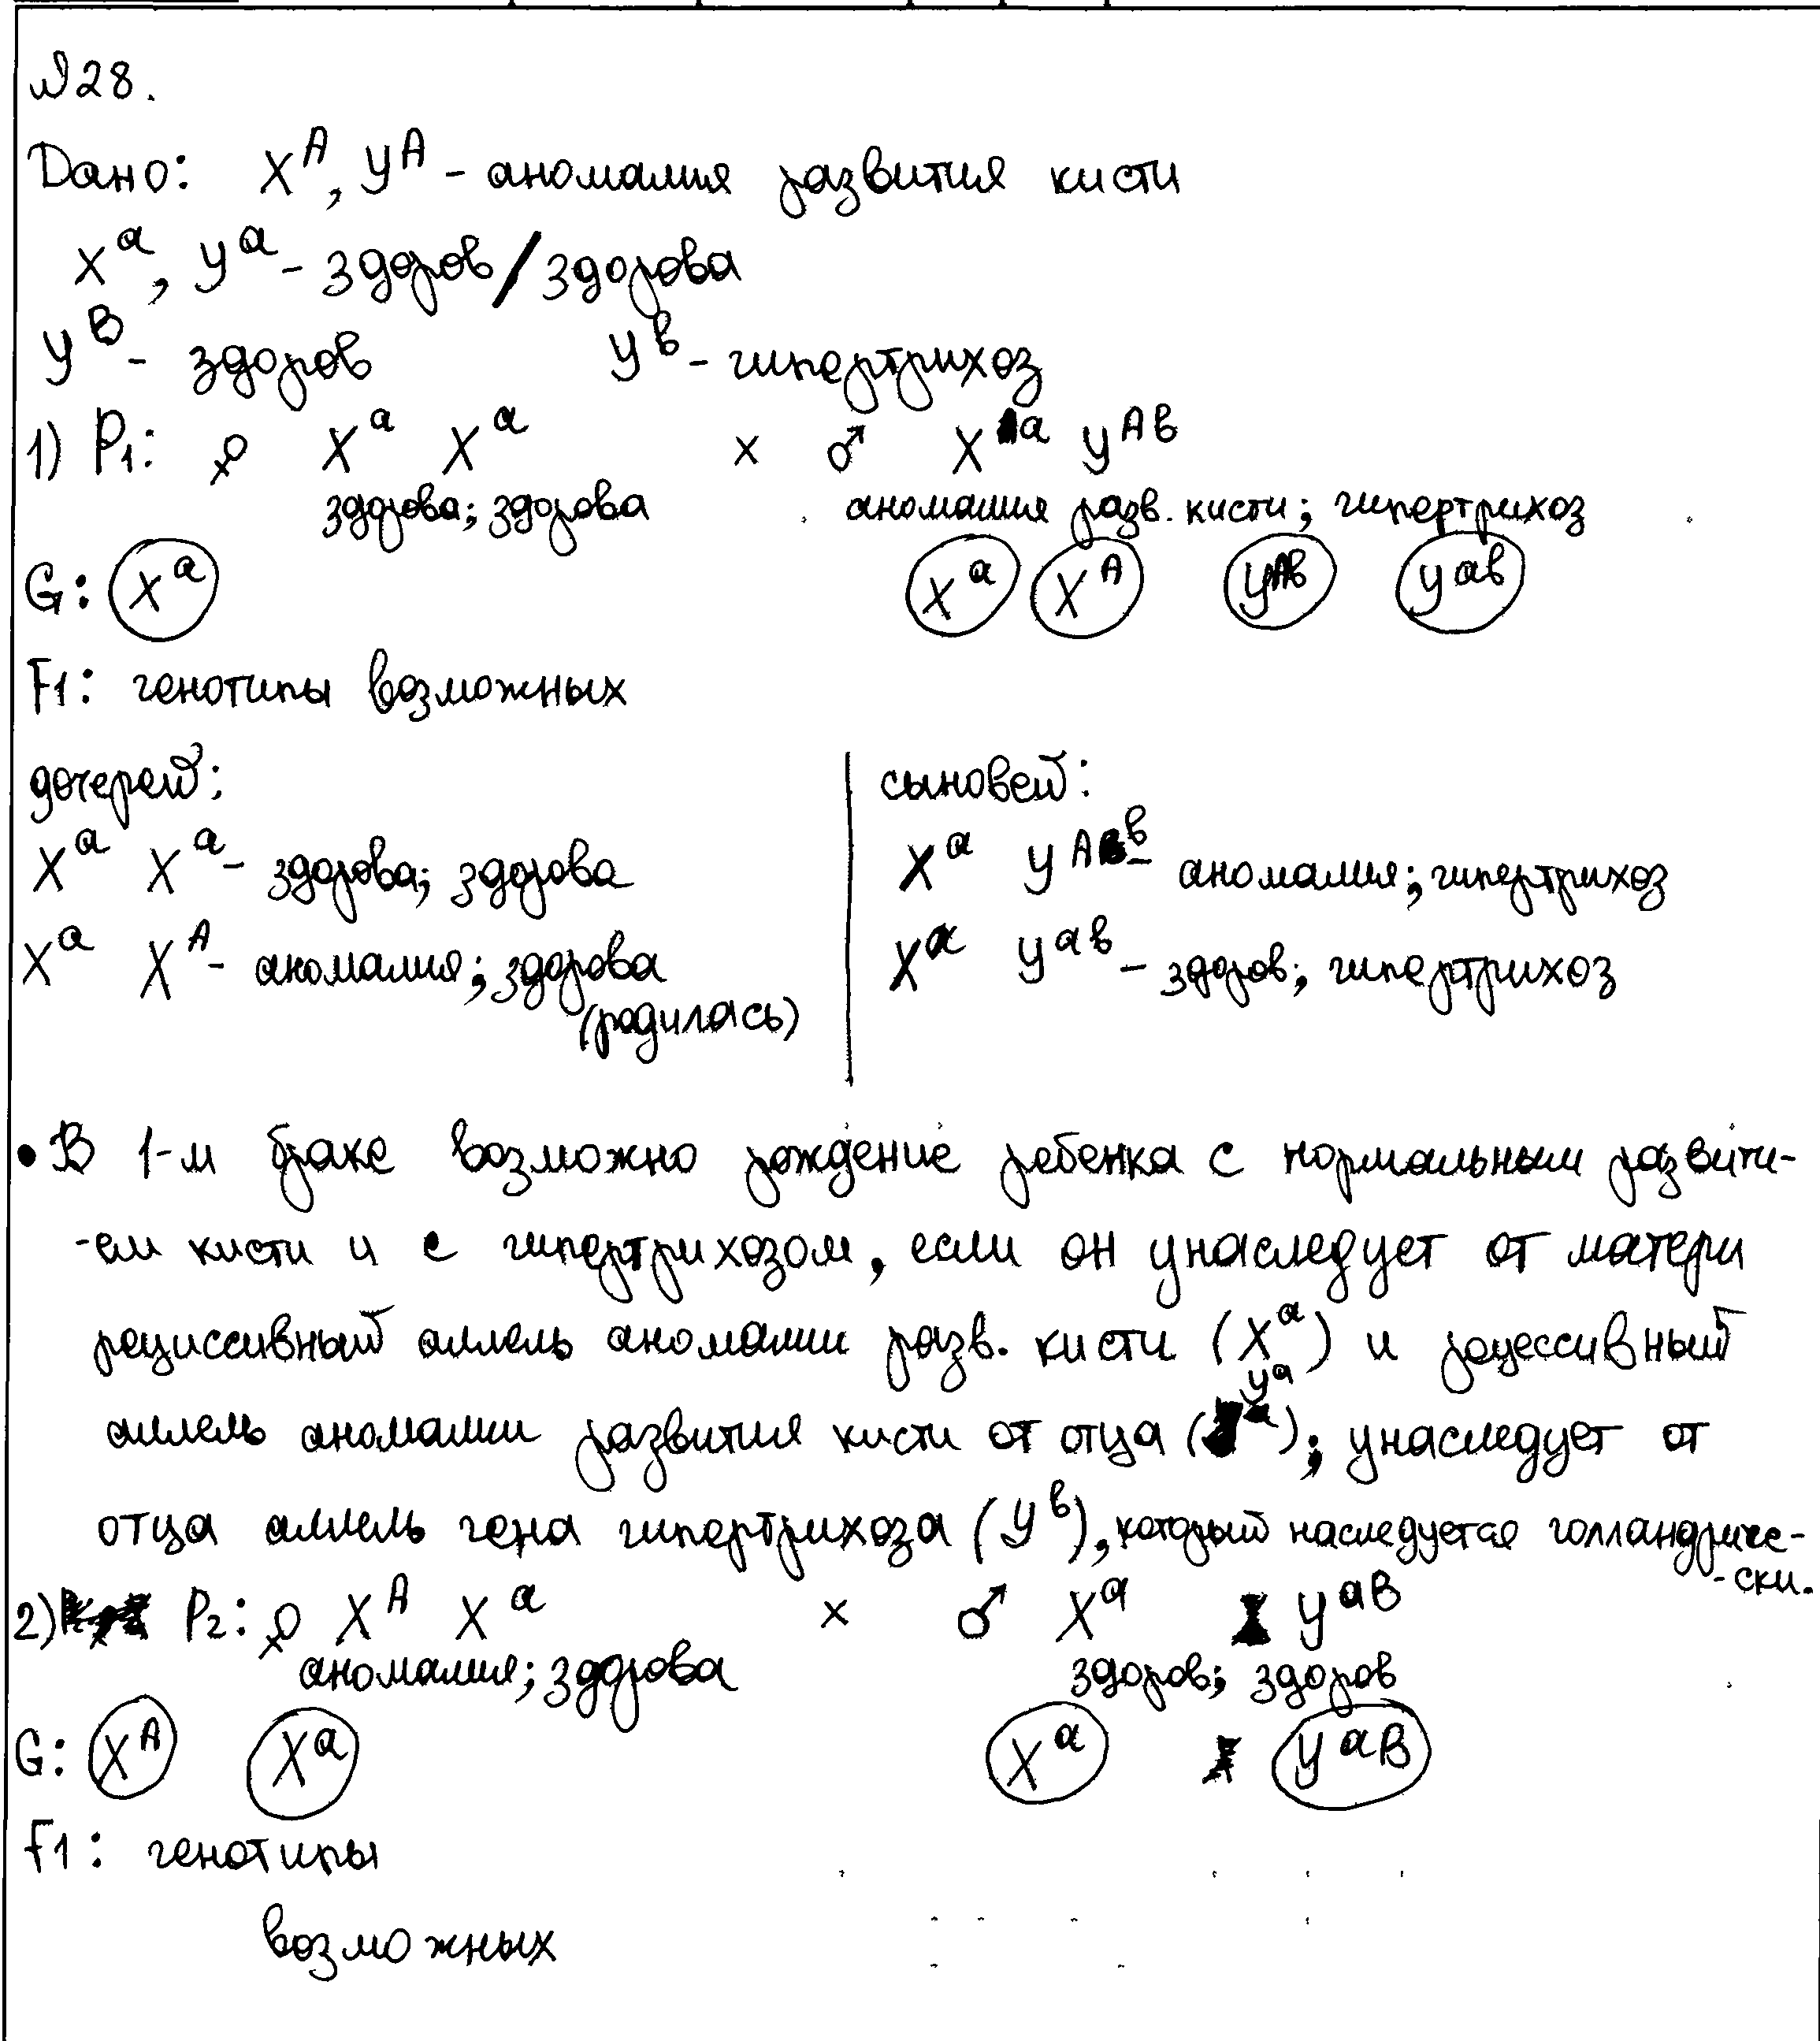 №28.
Дано: X^A, У^A - аномалия развития кисти
X^a, У^a - здоров/здорова
У^B - здоров У^b - гипертрихоз
1) P1: ♀ X^a X^a × ♂ X^a У^Ab
здорова; здорова аномалия разв. кисти; гипертрихоз
G: X^a X^a X^A У^Ab У^ab
F1: генотипы возможных
дочерей: сыновей:
X^a X^a - здорова; здорова X^a У^Ab - аномалия; гипертрихоз
X^a X^A - аномалия; здорова X^a У^ab - здоров; гипертрихоз
(родилась)
• В 1-м браке возможно рождение ребенка с нормальным развити-
-ем кисти и с гипертрихозом, если он унаследует от матери
рециссивный аллель аномалии разв. кисти (X^a) и рецессивный
аллель аномалии развития кисти от отца (У^a); унаследует от
отца аллель гена гипертрихоза (У^b), который наследуется голландриче-
-ски.
2) P2: ♀ X^A X^a × ♂ X^a У^aB
аномалия; здорова здоров; здоров
G: X^A X^a X^a У^aB
F1: генотипы
возможных